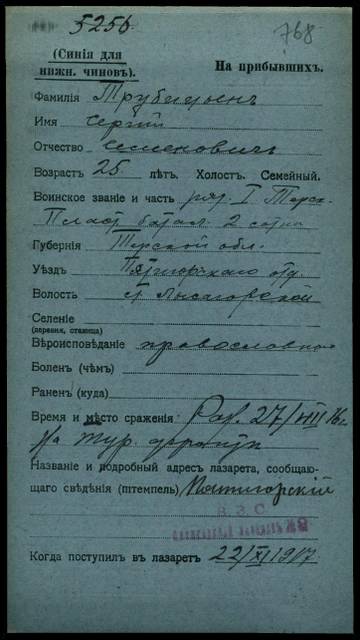 5256
768
(Синія для
нижн. чиновъ).
На прибывшихъ.
Фамилія Трубицынъ
Имя Сергій
Отчество Семеновичъ
Возрастъ 25 лѣтъ. Холост. Семейный.
Воинское званіе и часть ряд. I Терск.
Пласт. батал. 2 сотни
Губернія Терской обл.
Уѣздъ Пятигорскаго отд.
Волость ст. Лысогорской
Селеніе
(деревня, станица)
Вѣроисповѣданіе православн
Болен (чѣмъ)
Ранен (куда)
Время и мѣсto сраженія Ран. 27/VIII 16 г.
На тур. фронтѣ
Названіе и подробный адресъ лазарета, сообщаю-
щаго свѣдѣнія (штемпель) Пятигорскій
В. З. С.
Когда поступилъ въ лазаретъ 22/XI 1917